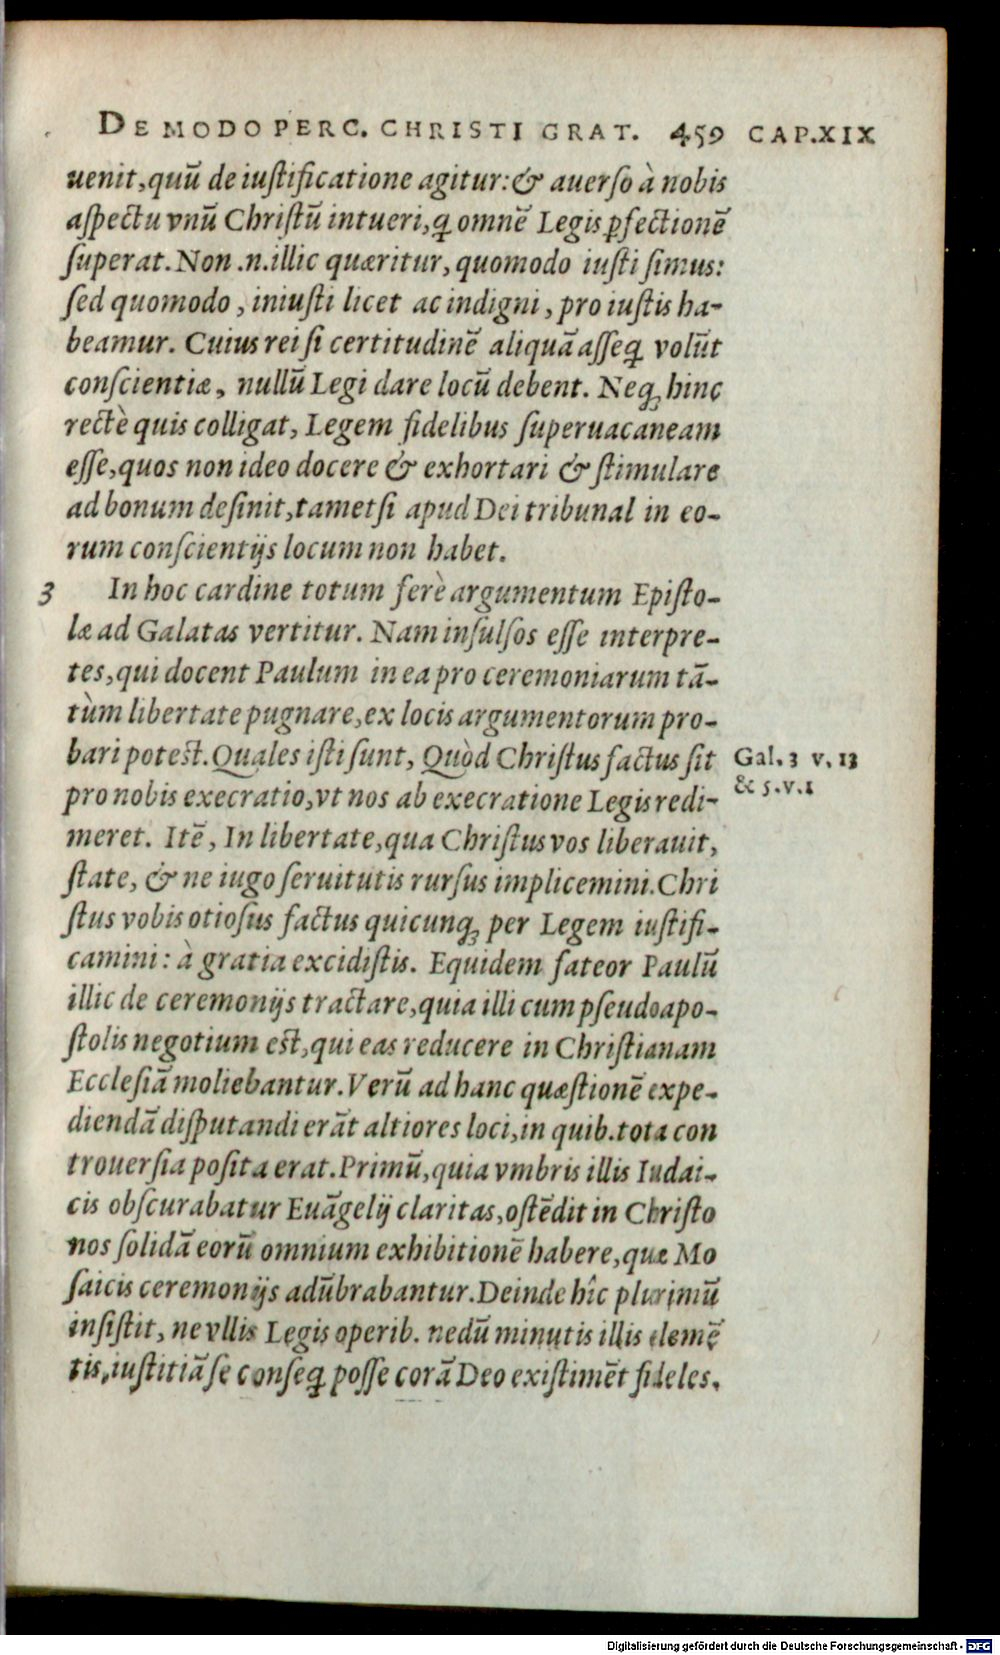 DE MODO PERC. CHRISTI GRAT. 459 CAP.XIX
uenit,quũ de iustificatione agitur:& auerso à nobis
aspectu vnũ Christũ intueri,ꝗ omnẽ Legis ꝑfectionẽ
superat. Non .n.illic quæritur, quomodo iusti simus:
sed quomodo, iniusti licet ac indigni, pro iustis ha-
beamur. Cuius rei si certitudinẽ aliquã asseꝗ volũt
conscientiæ, nullũ Legi dare locũ debent. Neq; hinc
rectè quis colligat, Legem fidelibus superuacaneam
esse,quos non ideo docere & exhortari & stimulare
ad bonum desinit,tametsi apud Dei tribunal in eo-
rum conscientijs locum non habet.
3 In hoc cardine totum ferè argumentum Episto-
læ ad Galatas vertitur. Nam insulsos esse interpre-
tes,qui docent Paulum in ea pro ceremoniarum tã-
tùm libertate pugnare,ex locis argumentorum pro-
bari potest.Quales isti sunt, Quòd Christus factus sit
Gal.3 v.13
pro nobis execratio,vt nos ab execratione Legis redi-
& 5.v.1
meret. Itẽ, In libertate,qua Christus vos liberauit,
state, & ne iugo seruitutis rursus implicemini.Chri
stus vobis otiosus factus quicunq; per Legem iustifi-
camini: à gratia excidistis. Equidem fateor Paulũ
illic de ceremonijs tractare,quia illi cum pseudoapo-
stolis negotium est,qui eas reducere in Christianam
Ecclesiã moliebantur.Verũ ad hanc quæstionẽ expe-
diendã disputandi erãt altiores loci,in quib.tota con
trouersia posita erat.Primũ,quia vmbris illis Iudai-
cis obscurabatur Euãgelij claritas,ostẽdit in Christo
nos solidã eorũ omnium exhibitionẽ habere,quæ Mo
saicis ceremonijs adũbrabantur.Deinde hîc plurimũ
insistit, ne vllis Legis operib. nedũ minutis illis elemẽ
tis,iustitiã se conseꝗ posse corã Deo existimẽt fideles.
Digitalisierung gefördert durch die Deutsche Forschungsgemeinschaft - DFG